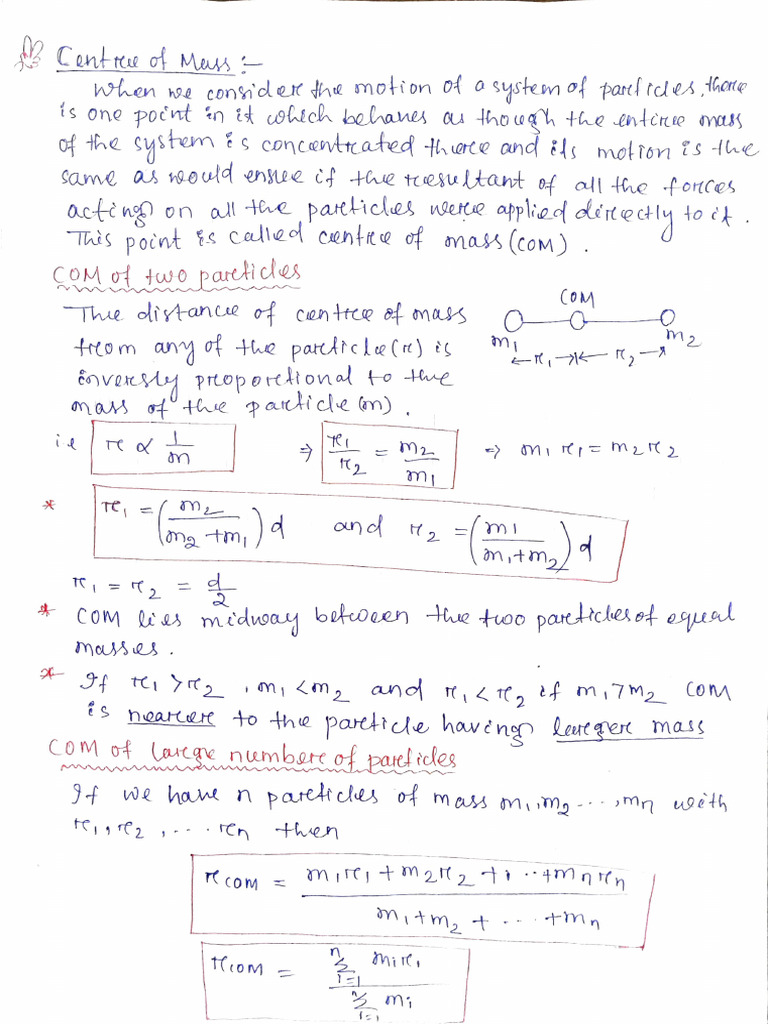 Centre of Mass :-
When we consider the motion of a system of particles, there
is one point in it which behaves as though the entire mass
of the system is concentrated there and its motion is the
same as would ensue if the resultant of all the forces
acting on all the particles were applied directly to it.
This point is called centre of mass (COM).
COM of two particles
The distance of centre of mass
from any of the particle (r) is
inversly proportional to the
mass of the particle (m).
COM
m₁ m₂
← r₁ →← r₂ →
ie r ∝ 1/m ⇒ r₁/r₂ = m₂/m₁ ⇒ m₁r₁ = m₂r₂
* r₁ = (m₂/(m₂+m₁)) d and r₂ = (m1/(m₁+m₂)) d
r₁ = r₂ = d/2
* COM lies midway between the two particles of equal
masses.
* If r₁ > r₂ , m₁ < m₂ and r₁ < r₂ if m₁ > m₂ COM
is nearer to the particle having larger mass
COM of large number of particles
If we have n particles of mass m₁, m₂ ..., mn with
r₁, r₂, .... rn then
rCOM = (m₁r₁ + m₂r₂ + ... + mnrn)/(m₁ + m₂ + ... + mn)
rCOM = (n Σ i=1 miri)/(n Σ i=1 mi)